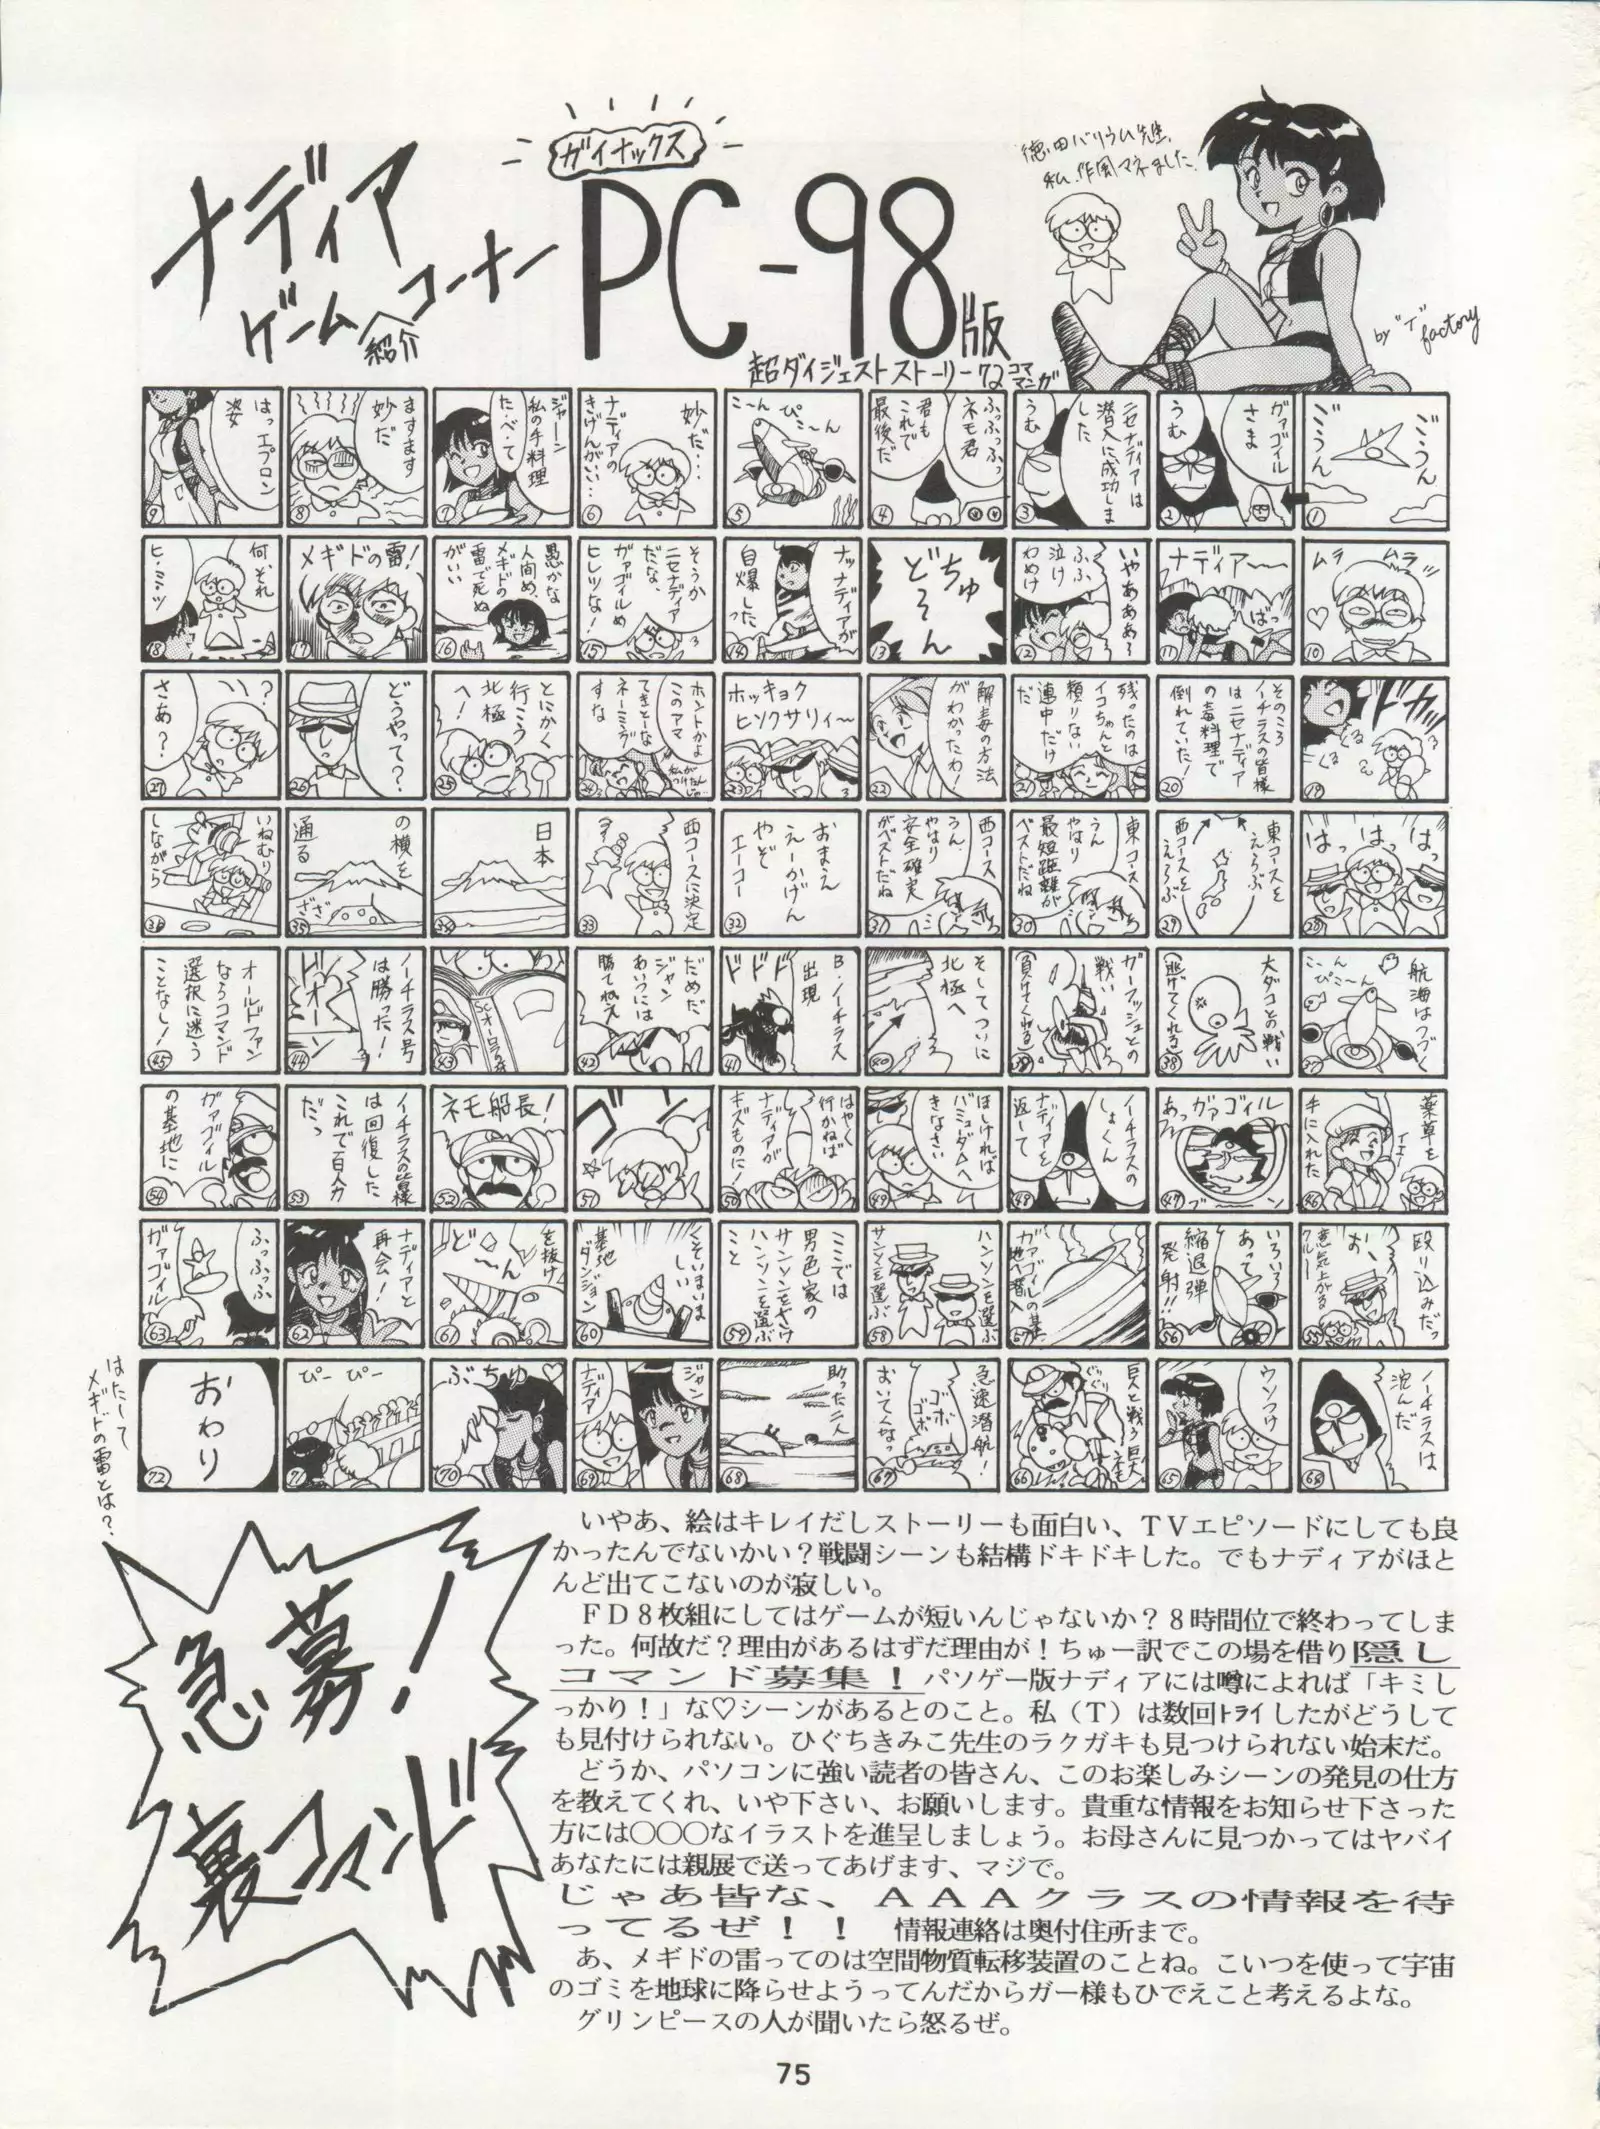 ナディア
ゲーム紹介コーナー
ガイナックス
PC-98版
徳田バリウム先生、
私、作風マネました。
by "T" factory
超ダイジェストストーリー72コママンガ
ごうん
ごうん
①
ガァゴイル
さま
うむ
②
ニセナディアは
潜入に成功しま
した
うむ
③
ふっふっふっ
ネモ君
君も
これで
最後だ
④
ぴこーん
こーん
⑤
妙だ…
ナディアの
きげんがいい…
⑥
ジャーン
私の手料理
た・べ・て
⑦
ますます
妙だ
⑧
はっエプロン
姿
⑨
ムラ
ムラ
⑩
ナディア〜〜
ばっ
⑪
いやあああ
ふふ、
泣け
わめけ
⑫
ちゅ
どーん
⑬
ナッナディアが
自爆した
⑭
そうか
ニセナディア
だな、
ガァゴイルめ
ヒレツな!
⑮
愚かな
人間め、
メギドの
雷で死ぬ
がいい
⑯
メギドの雷!
⑰
何、それ
ヒ・ミ・ツ
⑱
ドカッ
くるくる
⑲
そのころ
ノーチラスの皆様
はニセナディア
の毒料理で
倒れていた!
⑳
残ったのは
イコちゃんと
頼りない
連中だけ
だ
㉑
解毒の方法
がわかったわ!
㉒
ホッキョク
ヒソクサリィ〜
㉓
ホントかよ
このアマ
てきとーな
ネーミング
すな
㉔
とにかく
行こう
北極
へ!
㉕
どうやって?
㉖
?
さあ?
㉗
はっ
はっ
はっ
㉘
東コースを
えらぶ
西コースを
えらぶ
㉙
東コース
うん
やはり
最短距離が
ベストだね
㉚
西コース
うん、
やはり
安全確実
がベストだね
㉛
おまえ
えーかげん
やぞ
エーコー
㉜
西コースに決定
㉝
日本
㉞
の横を
通る
ざざ
㉟
いねむり
しながら
㊱
航海はつづく
こーん
ぴこーん
㊲
大ダコとの戦い
(逃げてくれる)
㊳
ガーフィッシュとの
戦い
(負けてくれる)
㊴
そしてついに
北極へ
㊵
B・ノーチラス
出現
ドドド
㊶
だめだ
ジャン
あいつには
勝てねえ
㊷
㊸
ノーチラス号
は勝った!
ドオーン
㊹
オールドファン
ならコマンド
選択に迷う
ことなし!
㊺
薬草を
手に入れた
イエー
㊻
あっガァゴイル
ブーン
㊼
ノーチラスの
しょくん
ナディアを
返して
㊽
ほしければ
バミューダムへ
きなさい
㊾
はやく
行かねば
ナディアが
キズものに!
㊿
51
ネモ船長!
52
ノーチラスの皆様
は回復した
これで百人力
だっ
53
ガァゴイル
の基地に
54
殴り込みだっ
お、
意気上がる
クルー
55
いろいろ
あって
縮退弾
発射!!
56
ガァゴイルの基
地へ潜入
57
ハンソンを選ぶ
サンソンを選ぶ
58
ここでは
男色家の
サンソンをさけ
ハンソンを選ぶ
こと
59
くそいまいま
しい
基地
ダンジョン
60
を抜け
ど〜ん
61
ナディアと
再会!
62
ふっふっふ
ガァゴイル
63
ノーチラスは
沈んだ
64
ウンつけ
65
巨人と戦う巨大
ネモ
66
急速潜航!
ゴボゴボ
おいてくなっ
67
助った二人
68
ジャン
ナディア
69
ぶちゅ♡
70
ぴー
ぴー
71
おわり
72
はたして
メギドの雷とは?
急募!
裏コマンド
いやあ、絵はキレイだしストーリーも面白い、TVエピソードにしても良
かったんでないかい?戦闘シーンも結構ドキドキした。でもナディアがほと
んど出てこないのが寂しい。
FD8枚組にしてはゲームが短いんじゃないか?8時間位で終わってしま
った。何故だ?理由があるはずだ理由が!ちゅー訳でこの場を借り隠し
コマンド募集!パソゲー版ナディアには噂によれば「キミし
っかり!」な♡シーンがあるとのこと。私(T)は数回ﾄﾗｲしたがどうして
も見付けられない。ひぐちきみこ先生のラクガキも見つけられない始末だ。
どうか、パソコンに強い読者の皆さん、このお楽しみシーンの発見の仕方
を教えてくれ、いや下さい、お願いします。貴重な情報をお知らせ下さった
方には○○○なイラストを進呈しましょう。お母さんに見つかってはヤバイ
あなたには親展で送ってあげます、マジで。
じゃあ皆な、AAAクラスの情報を待
ってるぜ!! 情報連絡は奥付住所まで。
あ、メギドの雷ってのは空間物質転移装置のことね。こいつを使って宇宙
のゴミを地球に降らせようってんだからガー様もひでえこと考えるよな。
グリンピースの人が聞いたら怒るぜ。
75